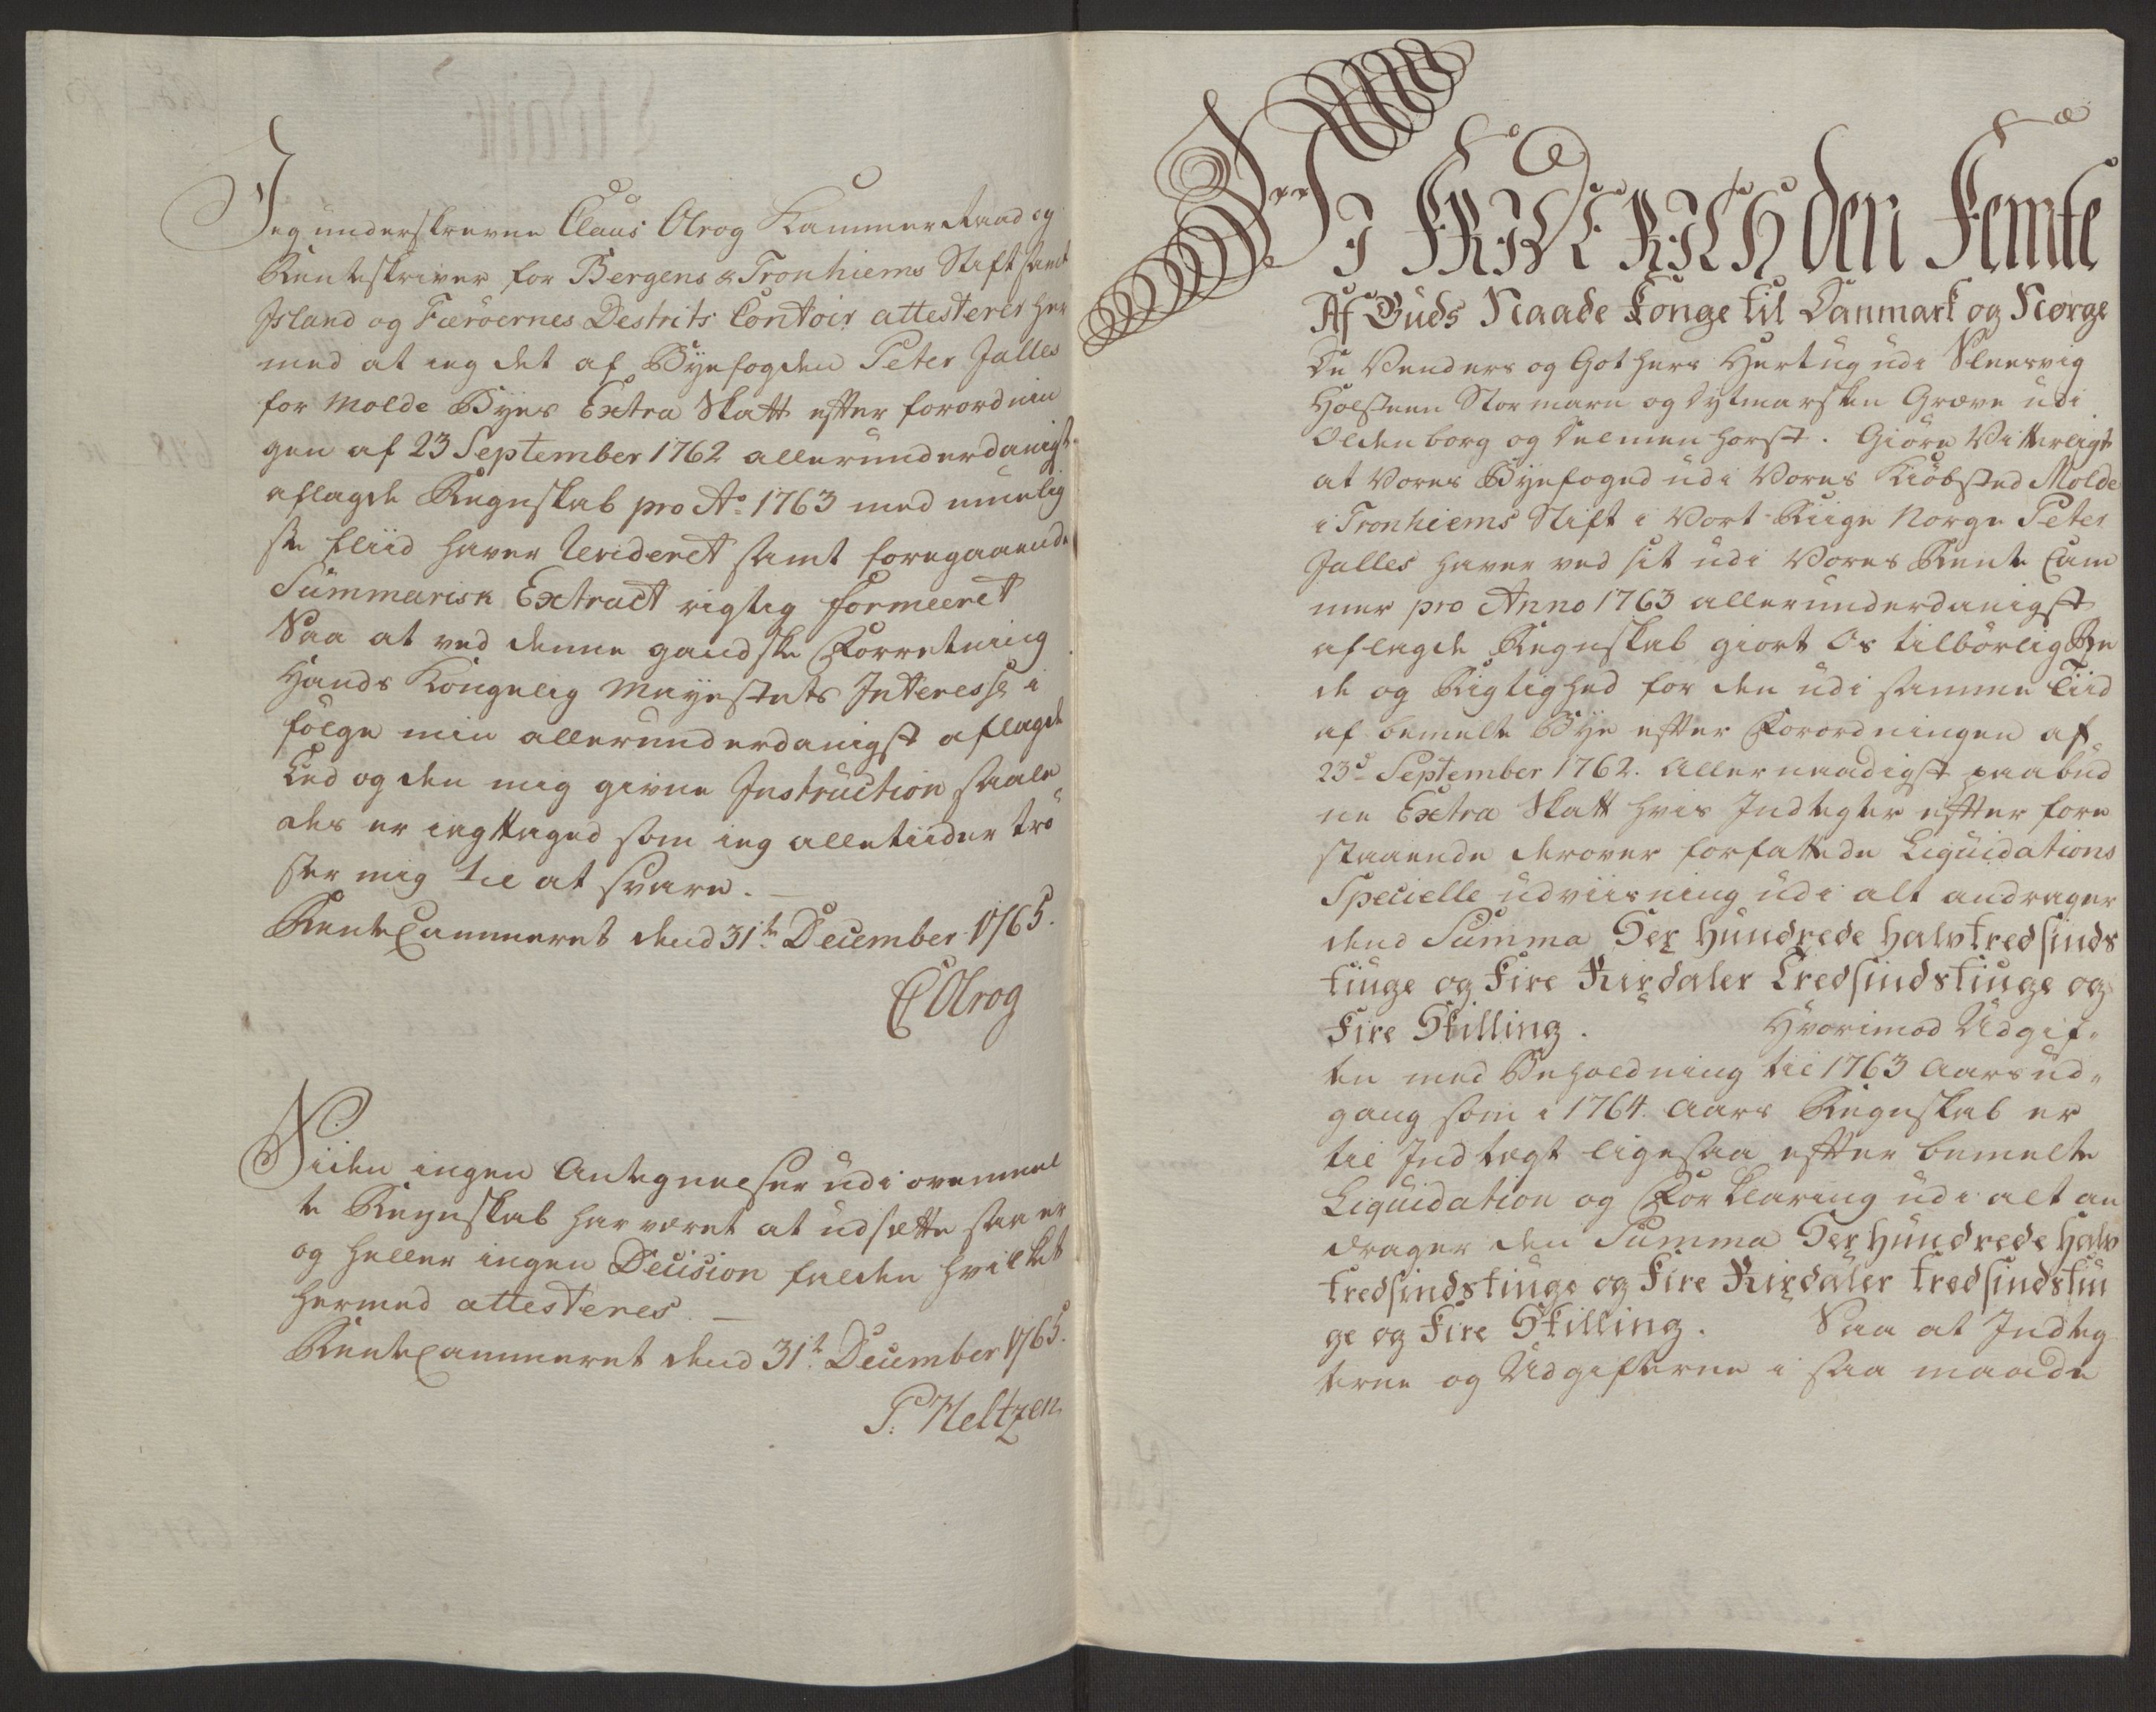 Jeg underskrevne Claus Olrog Kammer Raad og
Renteskriver for Bergens & Tronhiems Stift samt
Jsland og Færöernes Destrits Contoir attesterer her
med at ieg det af Byefogden Peter Jalles
for Molde Byes Extra Skatt efter forordnin
gen af 23 September 1762 allerunderdanigst
aflagde Regnskab pro Ao. 1763 med muelig
ste fliid haver Revideret samt foregaaende
Summarisk Extract rigtig formeeret
Saa at ved denne gandske Forretning
Hands Kongelig Mayestets Interesse i
følge min allerunderdanigst aflagde
Eed og den mig givne Instruction saale
des er iagttaged som ieg alletiider trö
ster mig til at svare.
RenteCammeret dend 31te December 1765.
COlrog
Siiden ingen Antegnelser udi ovenmel
te Regnskab har været at udsætte saa er
og heller ingen Decision falden hvilket
hermed attesteres.
RenteCammeret dend 31te December 1765.
P. Meltzen
Wi FRIDERICH den Femte
Af Guds Naade Konge til Danmark og Norge
De Venders og Gothers Hertug udi Sleesvig
Holsteen Stormarn og Dytmarsken Greve udi
Oldenborg og Delmenhorst. Giöre Vitterligt
at Vores Byefoged udi Vores Kiöbsted Molde
i Tronhiems Stift i Vort Riige Norge Peter
Jalles haver ved sit udi Vores Rente Cam
mer pro Anno 1763 allerunderdanigst
aflagde Regnskab giort Os tilbörlig Re
de og Rigtighed for den udi samme Tiid
af bemelte Bye efter Forordningen af
23d September 1762. Allernaadigst paabud
ne Extra Skatt hvis Indtegter efter fore
staaende derover forfattede Liquidations
Specielle udviisning udi alt andrager
dend Summa Sex Hundrede halvtredsinds
tiuge og Fire Rixdaler Tredsindstiuge og
Fire Skilling. Hvorimod Udgif-
ten med Beholdning til 1763 Aars ud-
gang som i 1764 Aars Regnskab er
til Indtegt ligesaa efter bemelte
Liquidation og Forklaring udi alt an
drager den Summa Sex Hundrede Halv
tredsindstiuge og Fire Rixdaler tredsindstiu
ge og Fire Skilling. Saa at Indteg
terne og Udgifterne i saa maade